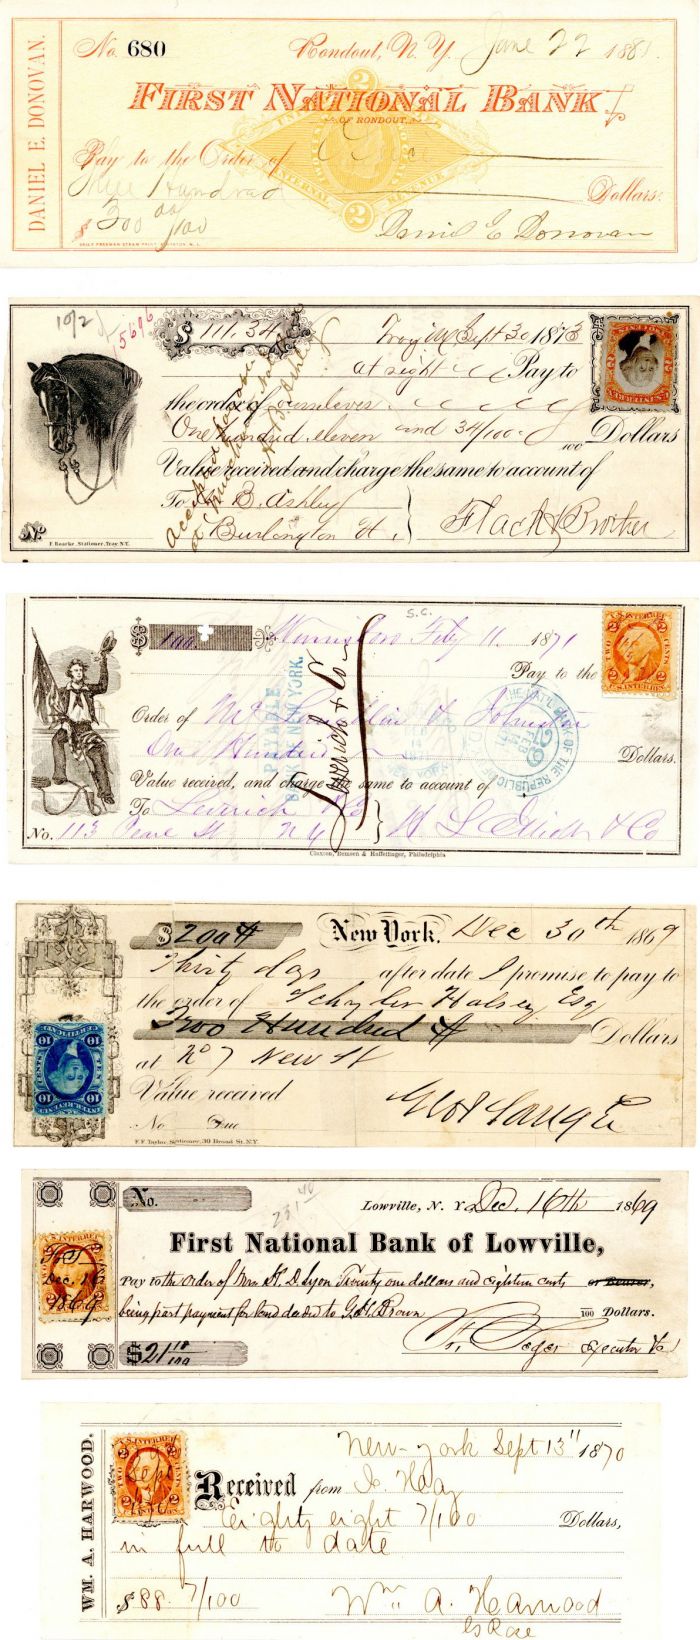 DANIEL E. DONOVAN.
No. 680 Rondout, N.Y. June 22 1881.
FIRST NATIONAL BANK
OF RONDOUT.
Pay to the Order of
Three Hundred Dollars.
$300 00/100
Daniel E Donovan
2
UNITED
INTERNAL REVENUE
2
1072
15696
$ 111.34 Troy Sept 30 1873
at sight Pay to
the order of ourselves
One hundred eleven and 34/100 100 Dollars
Value received and charge the same to account of
To B. Ashley
Burlington Vt. Flack & Brother
No.
F. Rourke, Stationer, Troy N.Y.
accepted payable
at
S.C.
$ 100 Winnsboro Feby 11 1871
Pay to the
Order of Johnston
One Hundred Dollars.
Value received, and charge the same to account of
To Leverich & Co
No. 113 Pearl St N Y
& Co
Leverich & Co
PAYABLE
NEW YORK.
THE NAT'L BANK OF THE REPUBLIC OF
FEB
Claxton, Remsen & Haffelfinger, Philadelphia
2 U.S. INTER. REV. 2
TWO CENTS
$200 New York. Dec 30th 1869
Thirty days after date I promise to pay to
the order of Schuyler Halsey Esq
Two Hundred Dollars
at No 7 New St
Value received
No Due
F.F. Taylor, Stationer, 30 Broad St. N.Y.
10
TEN CENTS
INTER. REVENUE
No.
231 40
Lowville, N. Y. Dec. 16th 1869
First National Bank of Lowville,
Pay to the order of Mrs. H. D. Lyon Twenty one dollars and eighteen cents or Bearer,
being part payment for land deeded to G. H. Brown 100 Dollars.
$21 18/100
Executor &c
Dec. 16
1869
WM. A. HARWOOD.
New-York Sept 13" 1870
Received from Hay
Eighty eight 7/100 Dollars,
in full to date
$88. 7/100 Wm. A. Harwood
Sept